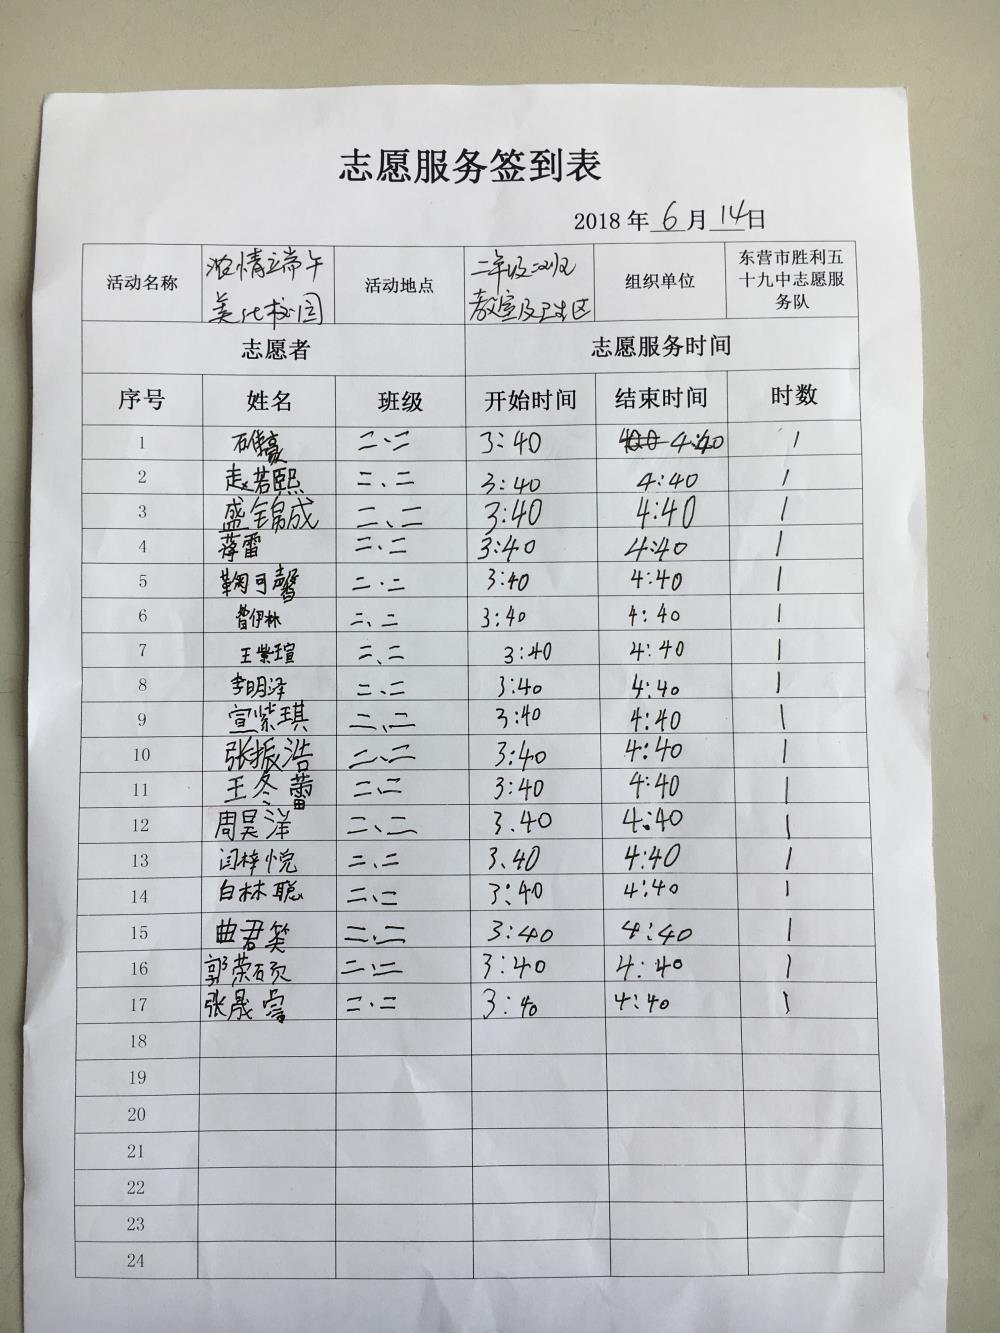 志愿服务签到表
2018 年 6 月 14 日
活动名称 浓情端午 美化校园 活动地点 二年级二班 教室及卫生区 组织单位 东营市胜利五十九中志愿服务队
志愿者 志愿服务时间
序号 姓名 班级 开始时间 结束时间 时数
1 二.二 3:40 4:40 1
2 赵若熙 二、二 3:40 4:40 1
3 盛锦成 二、二 3:40 4:40 1
4 蒋雷 二、二 3:40 4:40 1
5 鞠可馨 二.二 3:40 4:40 1
6 曹伊林 二、二 3:40 4:40 1
7 王紫瑄 二、二 3:40 4:40 1
8 李明泽 二、二 3:40 4:40 1
9 宣紫琪 二、二 3:40 4:40 1
10 张振浩 二、二 3:40 4:40 1
11 王冬蕾 二、二 3:40 4:40 1
12 周昊洋 二、二 3.40 4:40 1
13 闫梓悦 二、二 3.40 4:40 1
14 白林聪 二、二 3:40 4:40 1
15 曲君笑 二、二 3:40 4:40 1
16 郭荣硕 二、二 3:40 4:40 1
17 张晟 二.二 3:40 4:40 1
18
19
20
21
22
23
24